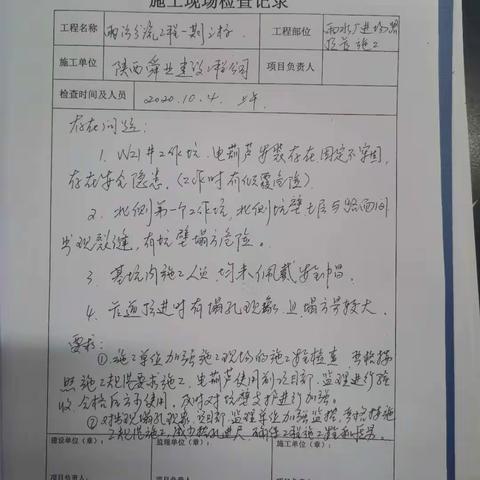 施工现场检查记录
工程名称 雨污分流工程一期 工程部位 雨水厂进场路
顶管施工
施工单位 陕西舜业建设工程公司 项目负责人
检查时间及人员 2020.10.4. 上午.
存在问题:
1. W21井工作坑,电葫芦安装存在固定不牢固,
存在安全隐患.(工作时有倾覆危险)
2. 北侧第一个工作坑,北侧坑壁土层与路面间
出现裂缝,有坑壁塌方危险。
3. 基坑内施工人员,均未佩戴安全帽.
4. 管道顶进时有塌孔现象,且塌方量较大.
要求:
①. 施工单位加强施工现场的施工安全检查
照施工规范要求施工,电葫芦使用前项目部、监理进行验
收,合格后方可使用,及时对坑壁支护进行加强。
②. 对出现塌孔现象,项目部、监理单位加强监控,
工规范施工,减少 进尺,确保工程施工
建设单位(章): 监理单位(章): 施工单位(章):
项目负责人: 项目负责人: 项目负责人: